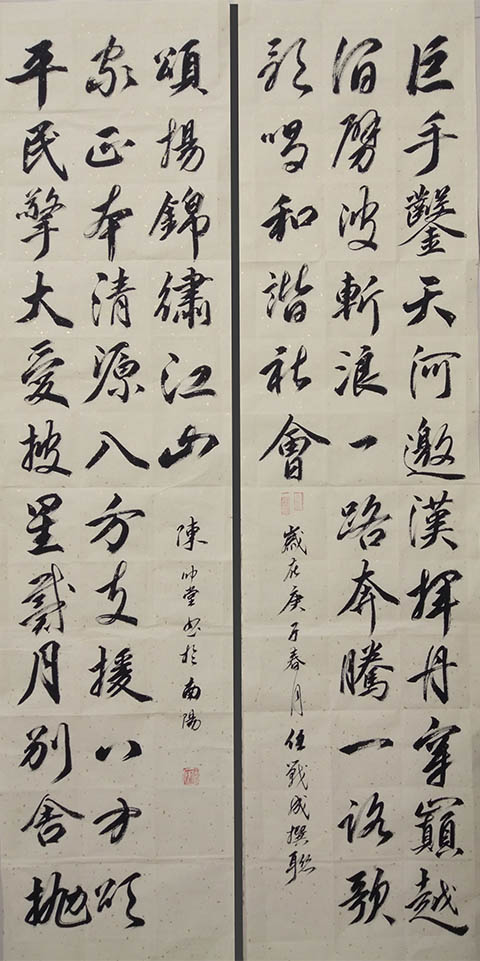 巨手鑿天河邀漢揮丹穿巔越
劈波斬浪一路奔騰一路歌
歌唱和諧社會
歲在庚子春月任戰成撰聯
平民擎大愛披星戴月別舍拋
家正本清源八方支援八方頌
頌揚錦繡江山
陳堂書於南陽